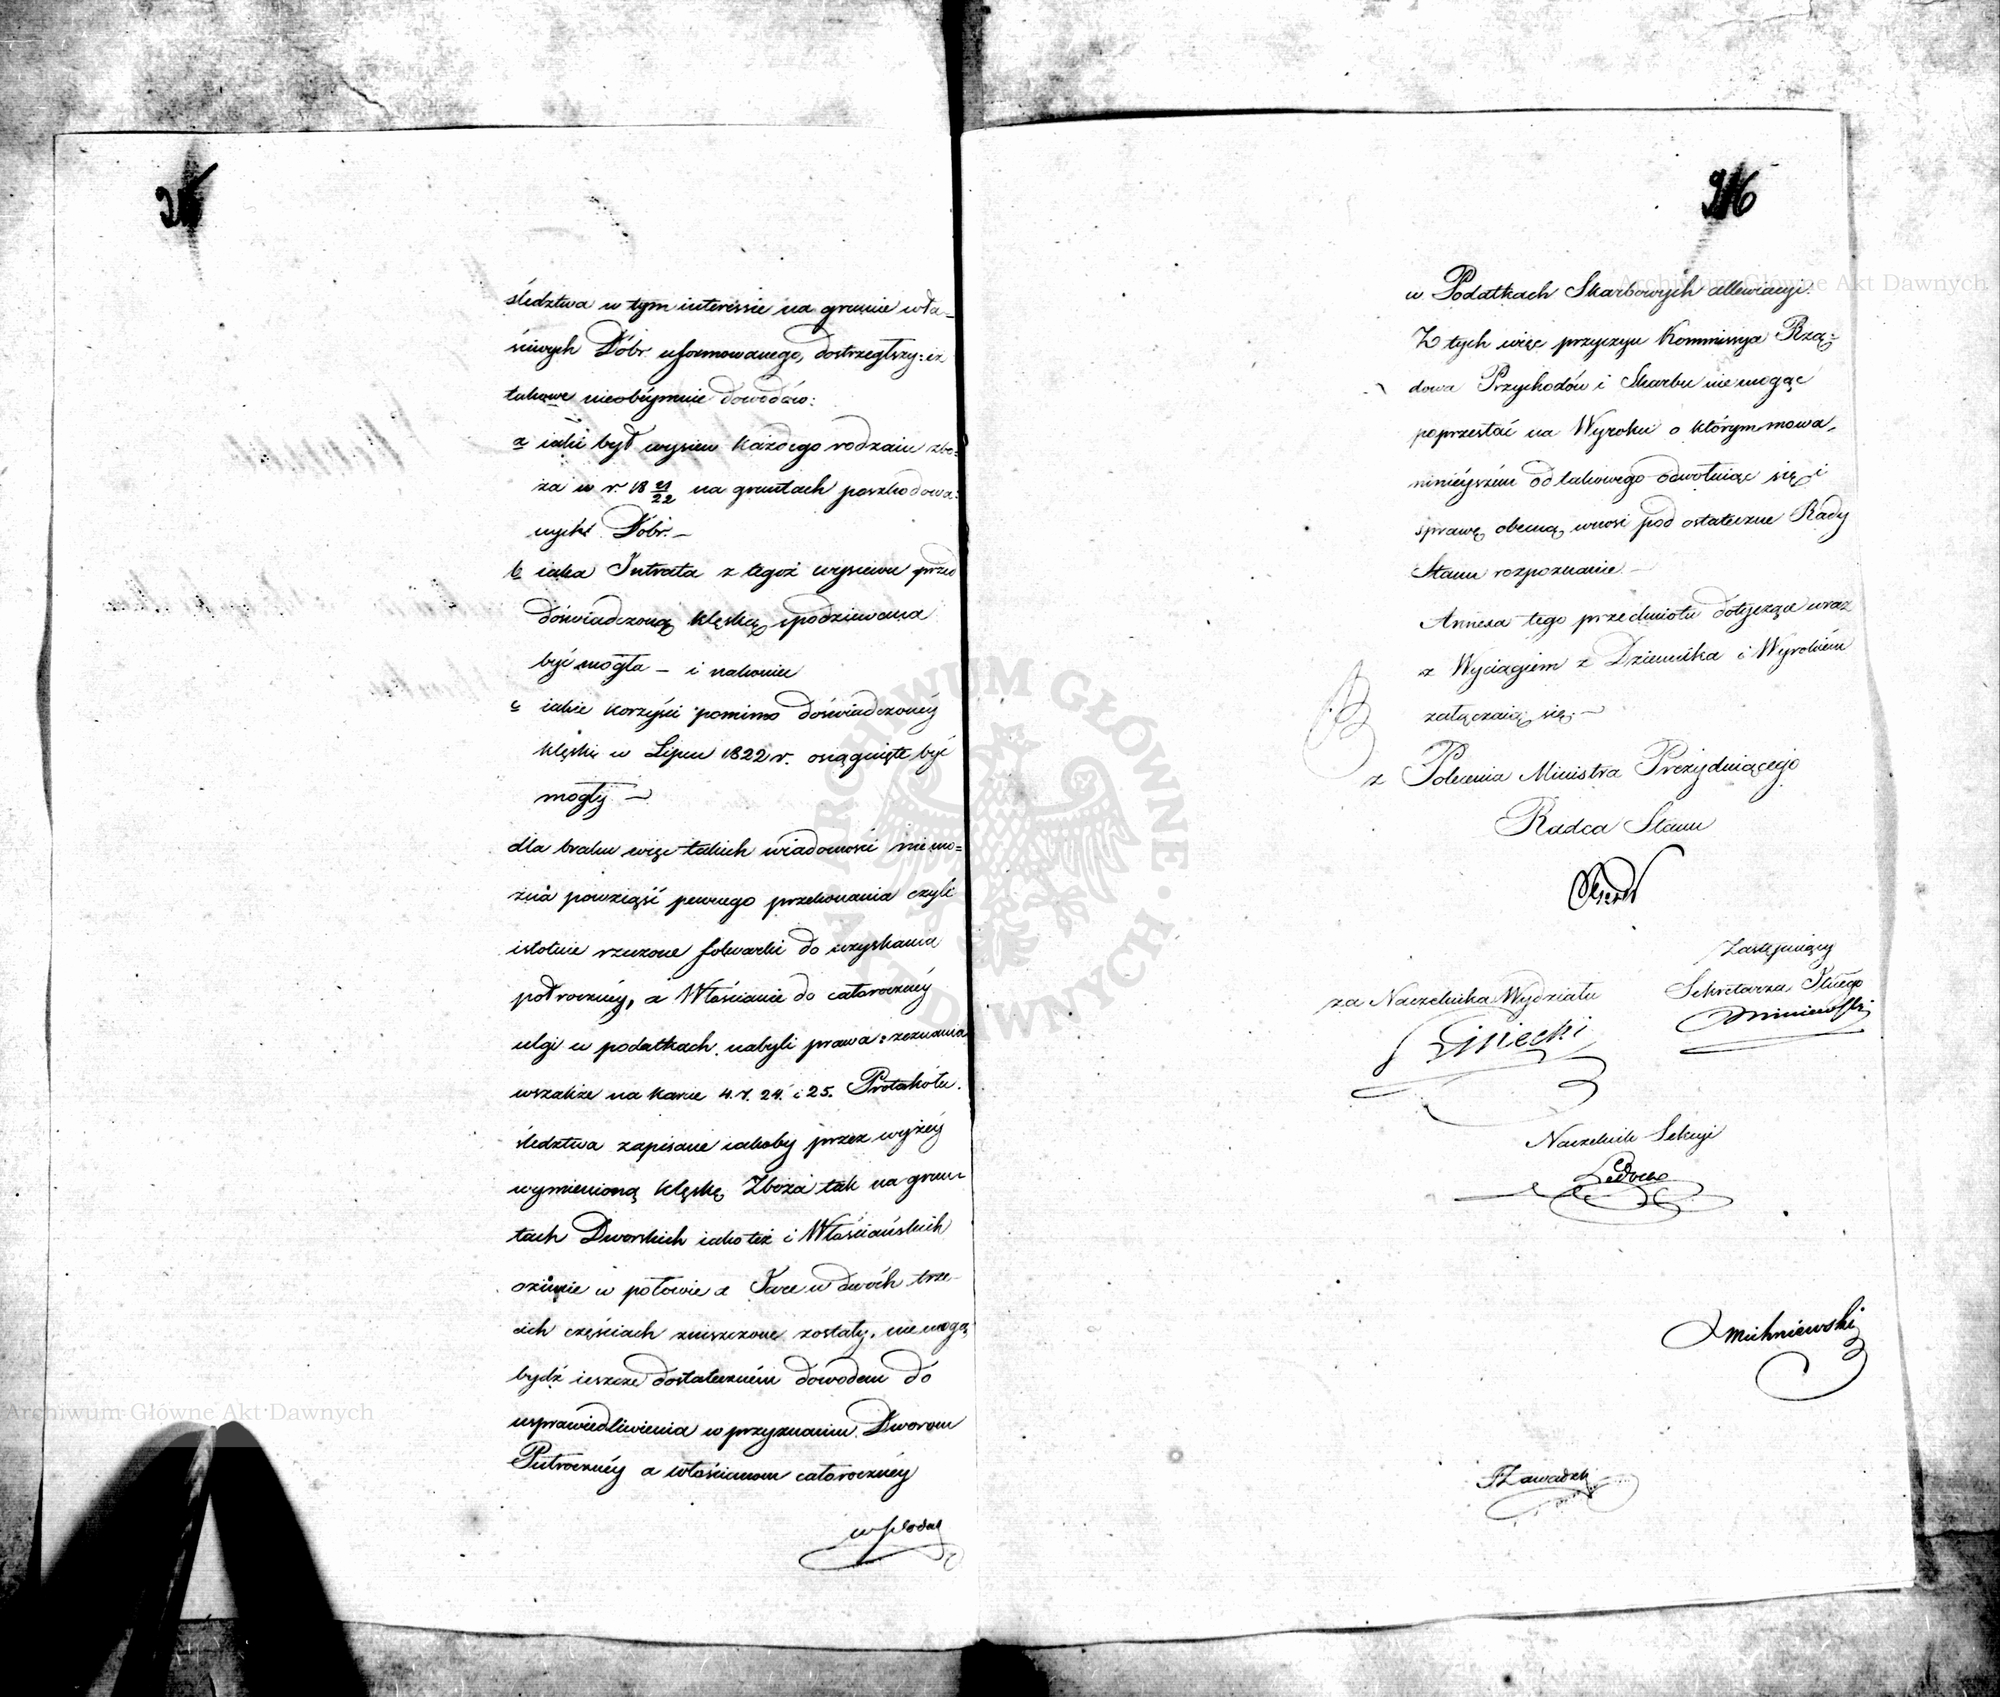 śledztwa w tym interessie na gruncie wła-
ściwych Dóbr uformowanego, dostrzegłszy: iż
takowe nieobéymuie dowodów:
a iaki był wysiew każdego rodzaiu zbo=
ża w r. 18 21/22 na gruntach poszkodowa=
nych Dóbr. —
b iaka Intrata z tegoż wysiewu przed
doświadczoną klęską spodziewana
być mogła — i nakoniec
c iakie korzyści pomimo doświadczonéy
klęski w Lipcu 1822 r. osiągnięte być
mogły —
dla braku więc takich wiadomości nie mo=
żna powziąść pewnego przekonania czyli
istotnie rzeczone folwarki do uzyskania
półrocznéy, a Włościanie do całorocznéy
ulgi w podatkach nabyli prawa: zeznania
wszakże na karcie 4. 7. 24. i 25. Protokołu
śledztwa zapisane iakoby przez wyżéy
wymienioną klęskę Zboża tak na grun-
tach Dworskich iako też i Włościańskich
ozimie w połowie a Jare w dwóch trze-
cich częściach zniszczone zostały, nie mogą
bydź ieszcze dostateczném dowodem do
usprawiedliwienia w przyznaniu Dworom
Półrocznéy a włościanom całorocznéy
w Podat
916
w Podatkach Skarbowych allewiacyi.
Z tych więc przyczyn Kommissya Rzą=
dowa Przychodów i Skarbu nie mogąc
poprzestać na Wyroku o którym mowa,
ninieyszém od takowego odwołuiąc się i
sprawę obecną wnosi pod ostateczne Rady
Stanu rozpoznanie —
Annexa tego przedmiotu dotyczące wraz
z Wyciągiem z Dziennika i Wyrokiem
załączaią się. —
z Polecenia Ministra Prezyduiącego
Radca Stanu
Zastępuiący
za Naczelnika Wydziału
Sekretarza Jłnego
Naczelnik Sekcyi
Michniewski
Zawadzki
Archiwum Główne Akt Dawnych
Archiwum Główne Akt Dawnych
ARCHIWUM GŁÓWNE AKT DAWNYCH